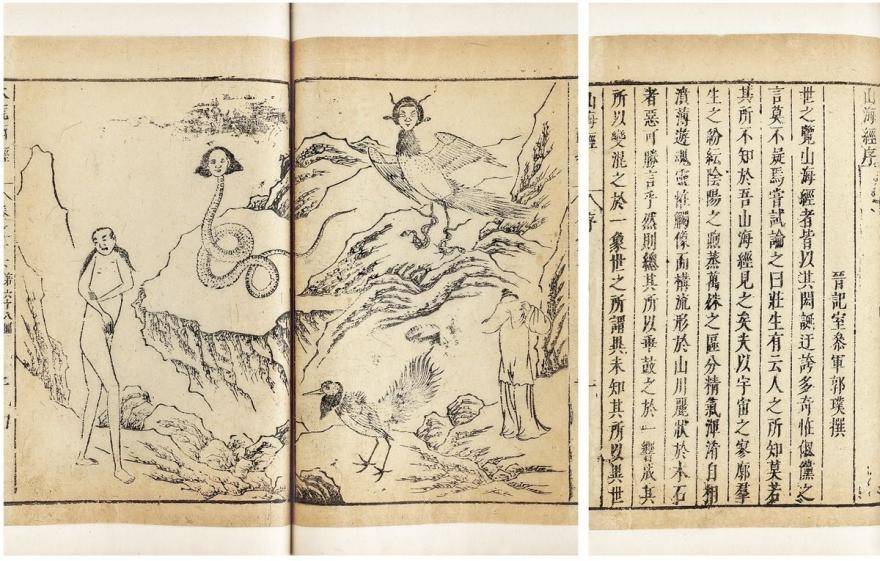 山海經序
晉記室參軍郭璞撰
世之覽山海經者皆以其閎誕迂誇多奇怪俶儻之
言莫不疑焉嘗試論之曰莊生有云人之所知莫若
其所不知於吾山海經見之矣夫以宇宙之寥廓羣
生之紛紜陰陽之煦蒸萬殊之區分精氣渾淆自相
濆薄遊魂靈怪觸像而構流形於山川麗狀於木石
者惡可勝言乎然則總其所以乖鼓之於一響成其
所以變混之於一象世之所謂異未知其所以異世
山海經
序